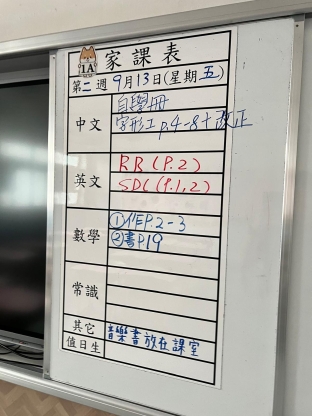 1A 家課表
第二週 9月13日(星期五)
中文
自學冊
字形工 p.4-8+改正
英文
RB (P.2)
SDC (P.1,2)
數學
①作P.2-3
②書P.19
常識
其它
音樂書放在課室
值日生